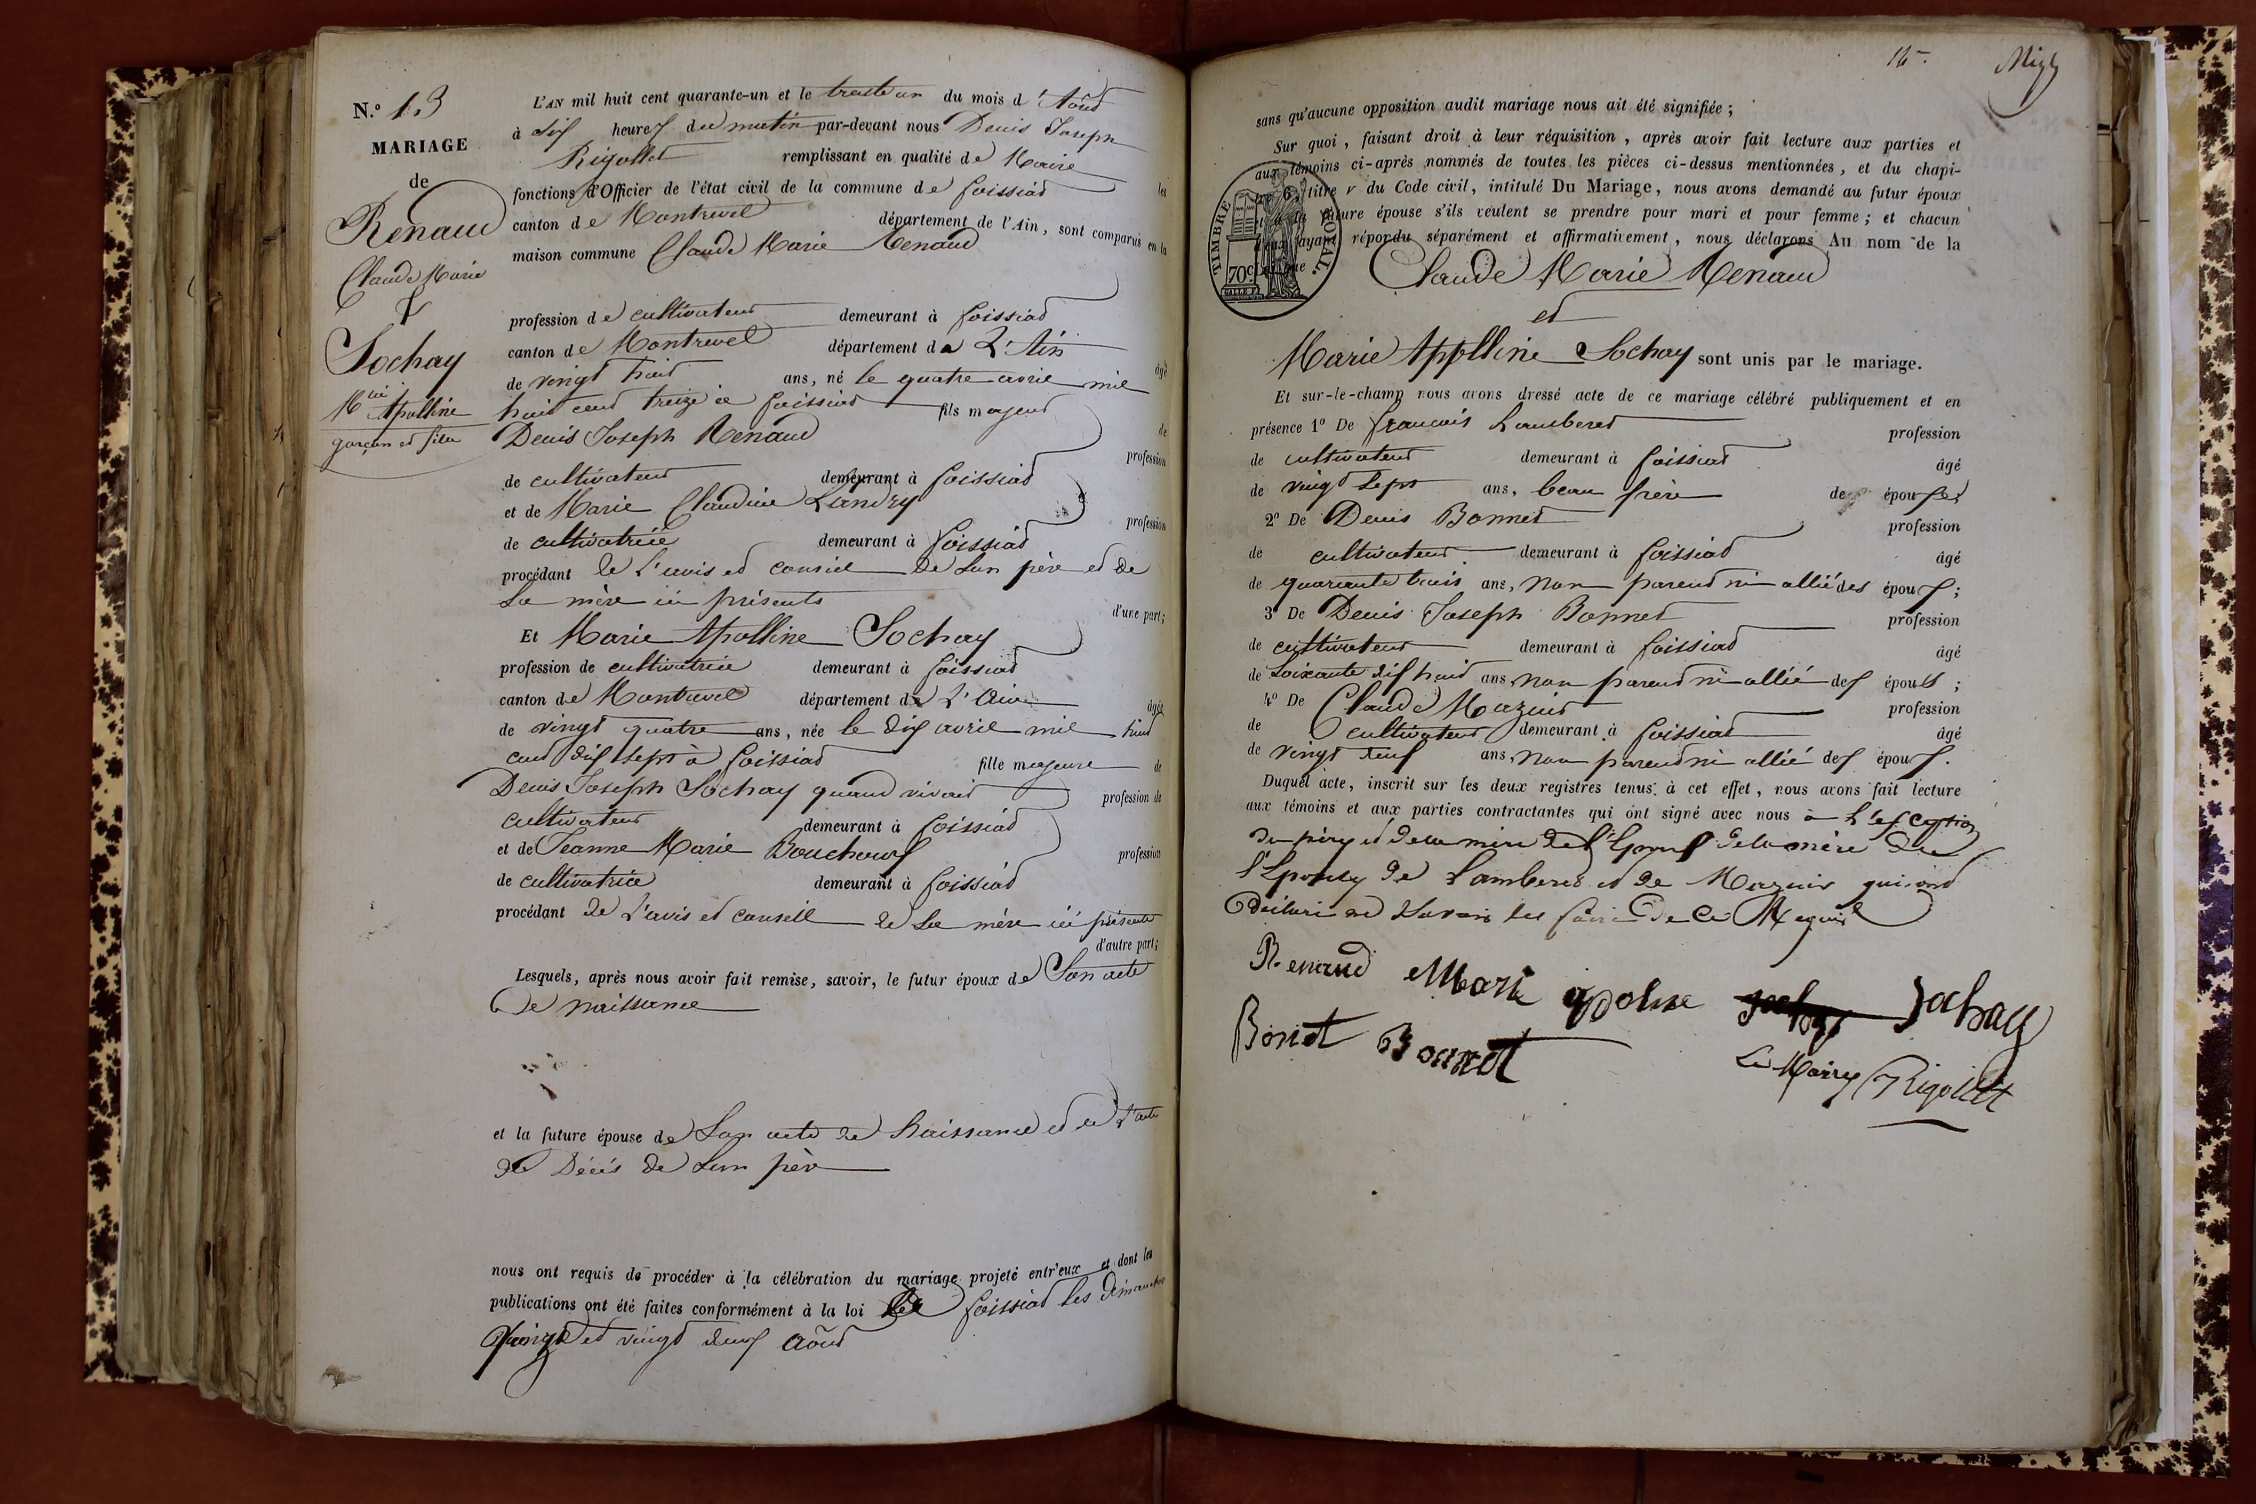 N.º 13
MARIAGE
de
Renaud
Claude Marie
&
Sochay
Mrie Apolline
garçon et fille
L'AN mil huit cent quarante-un et le trente un du mois d'Août
à dix heures du matin par-devant nous Denis Joseph
Rigollet remplissant en qualité de Maire les
fonctions d'Officier de l'état civil de la commune de foissiat
canton de Montrevel département de l'Ain, sont comparus en la
maison commune Claude Marie Renaud
profession de cultivateur demeurant à foissiat
canton de Montrevel département de L'Ain âgé
de vingt huit ans, né le quatre avril mil
huit cent treize à foissiat fils majeur de
Denis Joseph Renaud profession
de cultivateur demeurant à foissiat
et de Marie Claudine Landry profession
de cultivatrice demeurant à foissiat
procédant de l'avis et conseil de son père et de
sa mère ici présents d'une part;
Et Marie Apolline Sochay
profession de cultivatrice demeurant à foissiat
canton de Montrevel département de L'Ain âgée
de vingt quatre ans, née le dix avril mil huit
cent dix sept à foissiat fille majeure de
Denis Joseph Sochay quand vivait profession de
cultivateur demeurant à foissiat
et de Jeanne Marie Bouchoux profession
de cultivatrice demeurant à foissiat
procédant de l'avis et conseil de sa mère ici présente
d'autre part;
Lesquels, après nous avoir fait remise, savoir, le futur époux de son acte
de naissance
et la future épouse de son acte de naissance et de l'acte
de Décés de son père
nous ont requis de procéder à la célébration du mariage projeté entr'eux et dont les
publications ont été faites conformément à la loi foissiat les dimanches
et vingt deux août
sans qu'aucune opposition audit mariage nous ait été signifiée ;
Sur quoi, faisant droit à leur réquisition, après avoir fait lecture aux parties et
aux témoins ci-après nommés de toutes les pièces ci-dessus mentionnées, et du chapi-
tre 6, titre v du Code civil, intitulé Du Mariage, nous avons demandé au futur époux
et à la future épouse s'ils veulent se prendre pour mari et pour femme ; et chacun
d'eux ayant répondu séparément et affirmativement, nous déclarons Au nom de la
loi que
TIMBRE ROYAL.
70 c.
Claude Marie Renaud
et
Marie Appolline Sochay sont unis par le mariage.
Et sur-le-champ nous avons dressé acte de ce mariage célébré publiquement et en
présence 1º De francois Lamberet profession
de cultivateur demeurant à foissiat âgé
de vingt sept ans, beau frère de époux
2º De Denis Bonnet profession
de cultivateur demeurant à foissiat âgé
de quarante trois ans, non parent ni allié des époux ;
3º De Denis Joseph Bonnet profession
de cultivateur demeurant à foissiat âgé
de soixante dix huit ans, non parent ni allié des époux ;
4º De Claude Mazuir profession
de cultivateur demeurant à foissiat âgé
de vingt ans, non parent ni allié des époux.
Duquel acte, inscrit sur les deux registres tenus à cet effet, nous avons fait lecture
aux témoins et aux parties contractantes qui ont signé avec nous à l'exception
du père et de la mère de l'Epoux de la mère de
l'Epouse de Lamberet et de Mazuir qui ont
déclaré ne savoir le faire de ce Requis
Renaud Marie apoline Sochay
Bonet Bonnet
Le Maire Rigollet